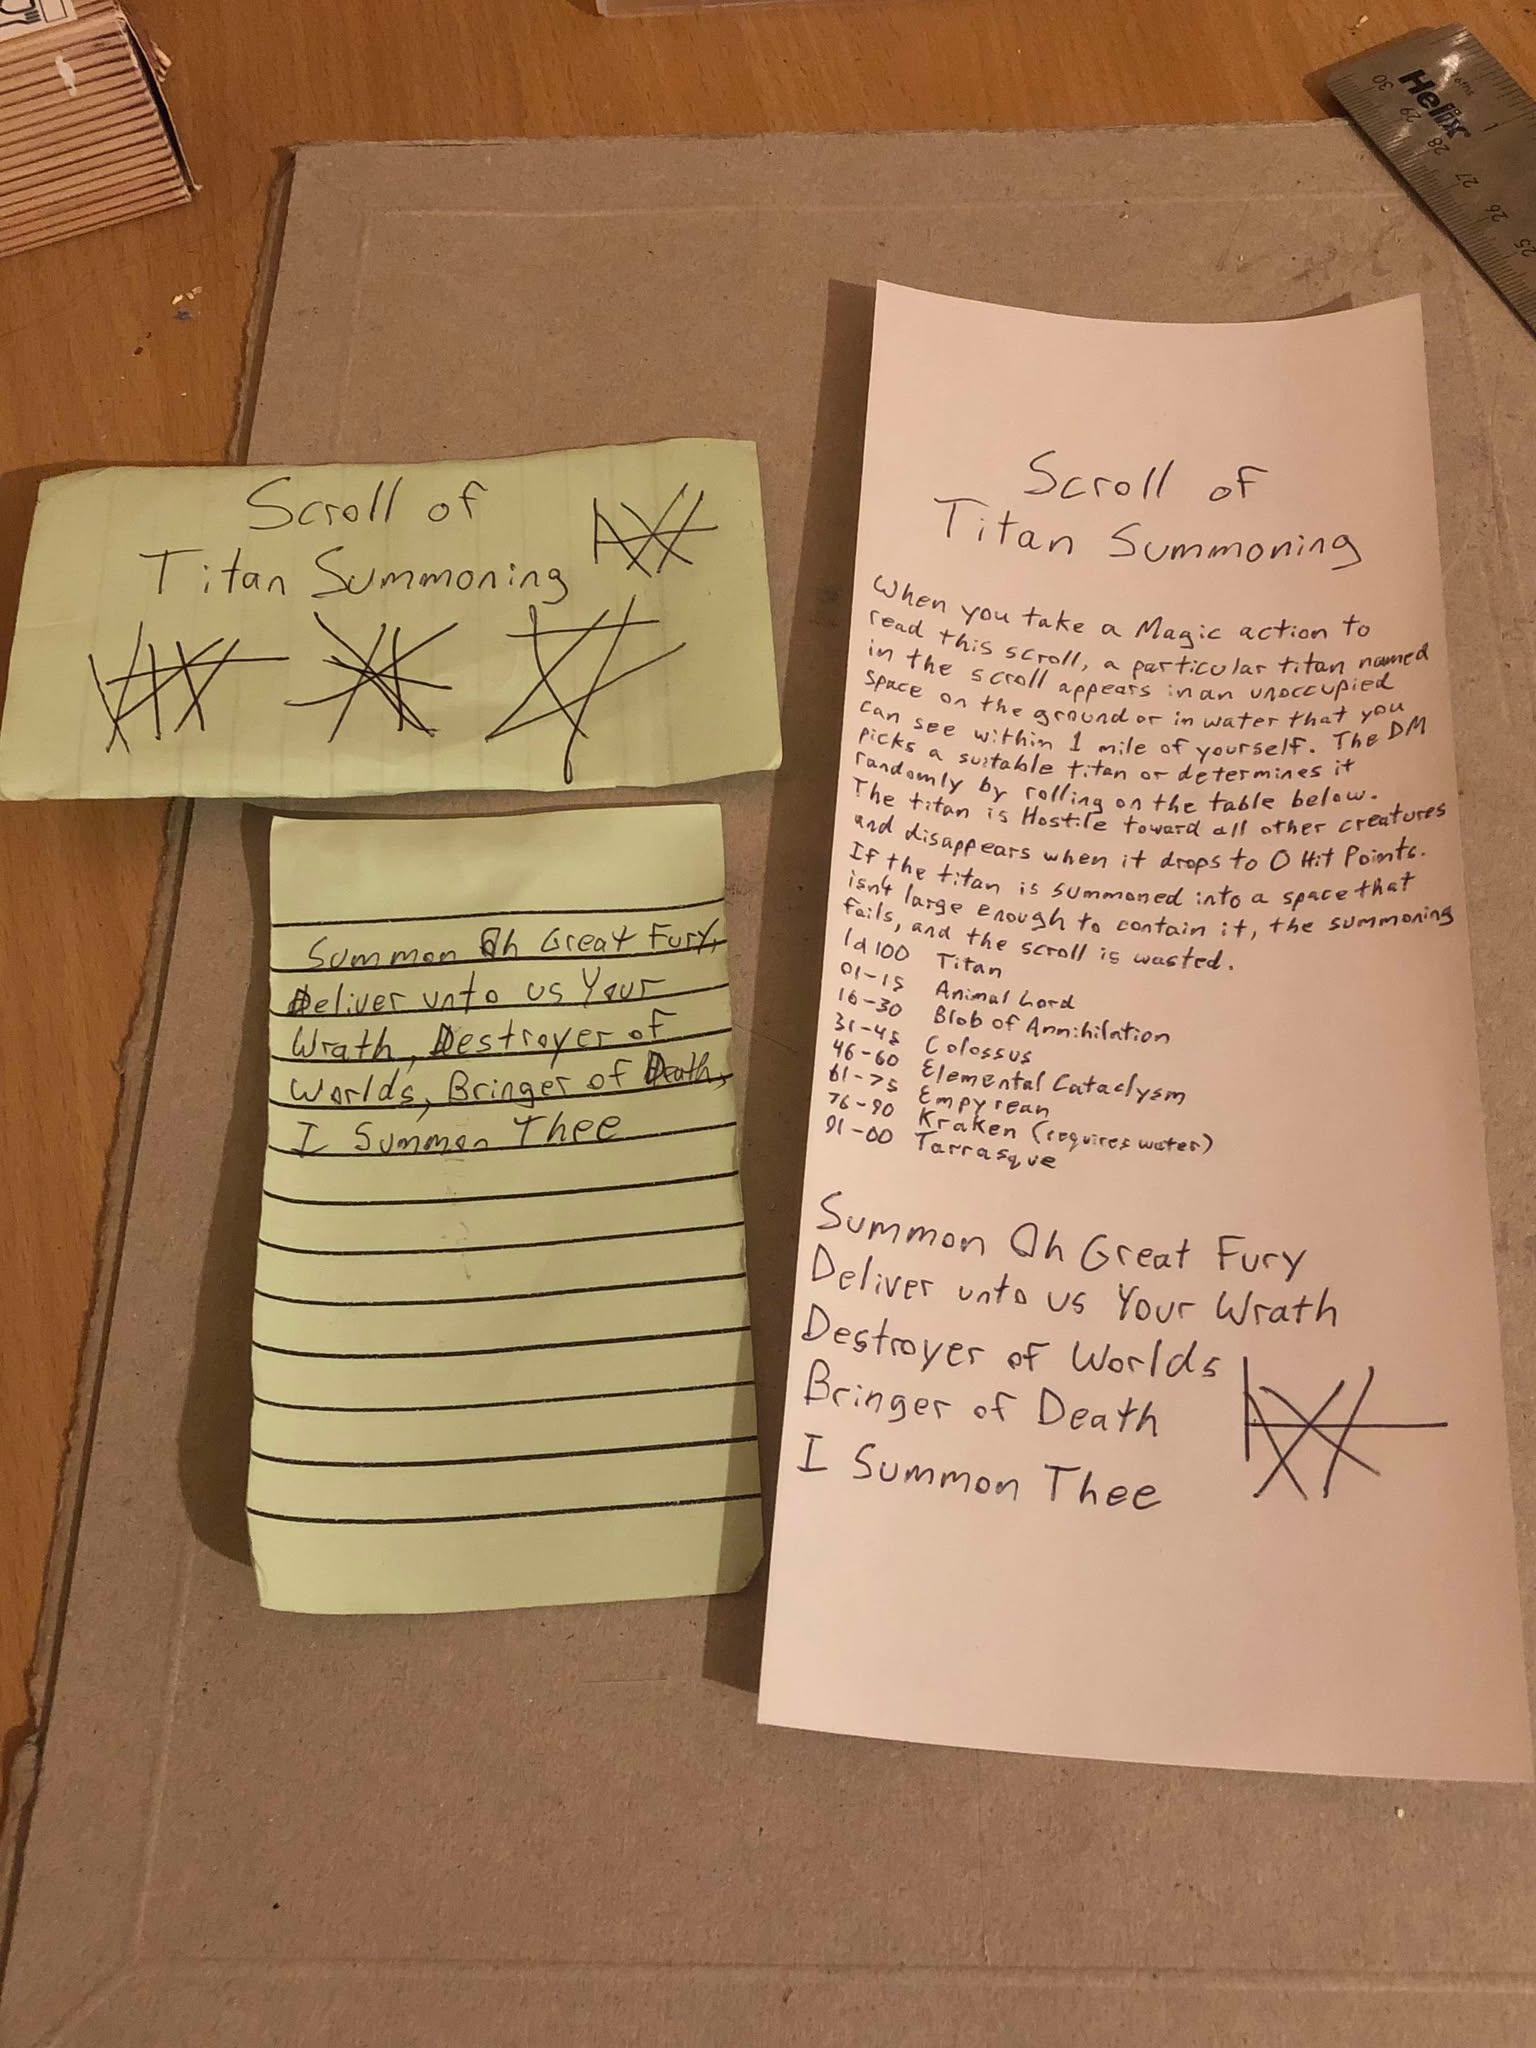 Helix
30
29
28
27
26
25
1
Scroll of
Titan Summoning
Summon Oh Great Fury,
Deliver unto us Your
Wrath, Destroyer of
Worlds, Bringer of Death,
I Summon Thee
Scroll of
Titan Summoning
When you take a Magic action to
read this scroll, a particular titan named
in the scroll appears in an unoccupied
space on the ground or in water that you
can see within 1 mile of yourself. The DM
picks a suitable titan or determines it
randomly by rolling on the table below.
The titan is Hostile toward all other creatures
and disappears when it drops to 0 Hit Points.
If the titan is summoned into a space that
isn't large enough to contain it, the summoning
fails, and the scroll is wasted.
1d100 Titan
01-15 Animal Lord
16-30 Blob of Annihilation
31-45 Colossus
46-60 Elemental Cataclysm
61-75 Empyrean
76-90 Kraken (requires water)
91-00 Tarrasque
Summon Oh Great Fury
Deliver unto us Your Wrath
Destroyer of Worlds
Bringer of Death
I Summon Thee